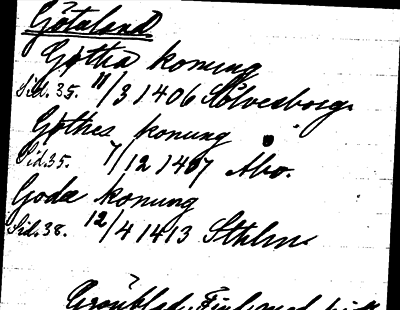 Götaland.
Gøtha konung
Sid. 35. 11/3 1406 Sölvesborg.
Gøthes konung
Sid. 35. 7/12 1407 Abo.
Goda konung
Sid. 38. 12/4 1413 Sthlm.